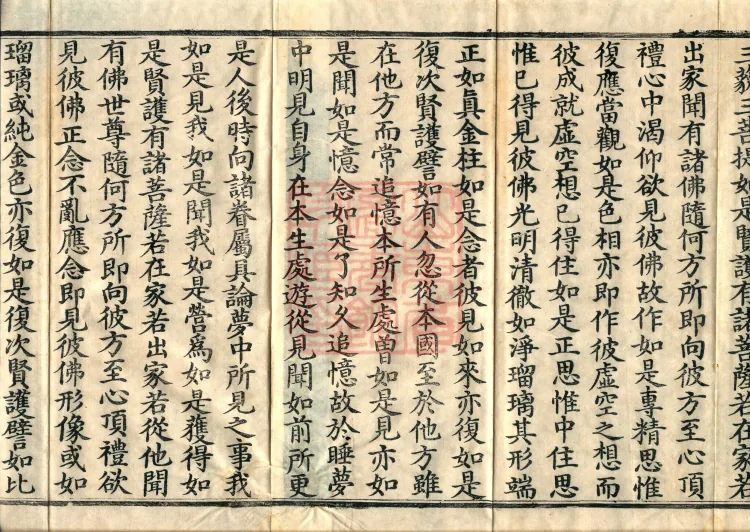 三藐三菩提如是賢護有諸菩薩若在家若
出家聞有諸佛隨何方所即向彼方至心頂
禮心中渴仰欲見彼佛故作如是專精思惟
復應當觀如是色相亦即作彼虛空之想而
彼成就虛空想已得住如是正思惟中住思
惟已得見彼佛光明清徹如淨瑠璃其形端
正如真金柱如是念者彼見如來亦復如是
復次賢護譬如有人忽從本國至於他方雖
在他方而常追憶本所生處曾如是見亦如
是聞如是憶念如是了知久追憶故於睡夢
中明見自身在本生處遊從見聞如前所更
是人後時向諸眷屬具論夢中所見之事我
如是見我如是聞我如是營為如是獲得如
是賢護有諸菩薩若在家若出家若從他聞
有佛世尊隨何方所即向彼方至心頂禮欲
見彼佛正念不亂應念即見彼佛形像或如
瑠璃或純金色亦復如是復次賢護譬如比